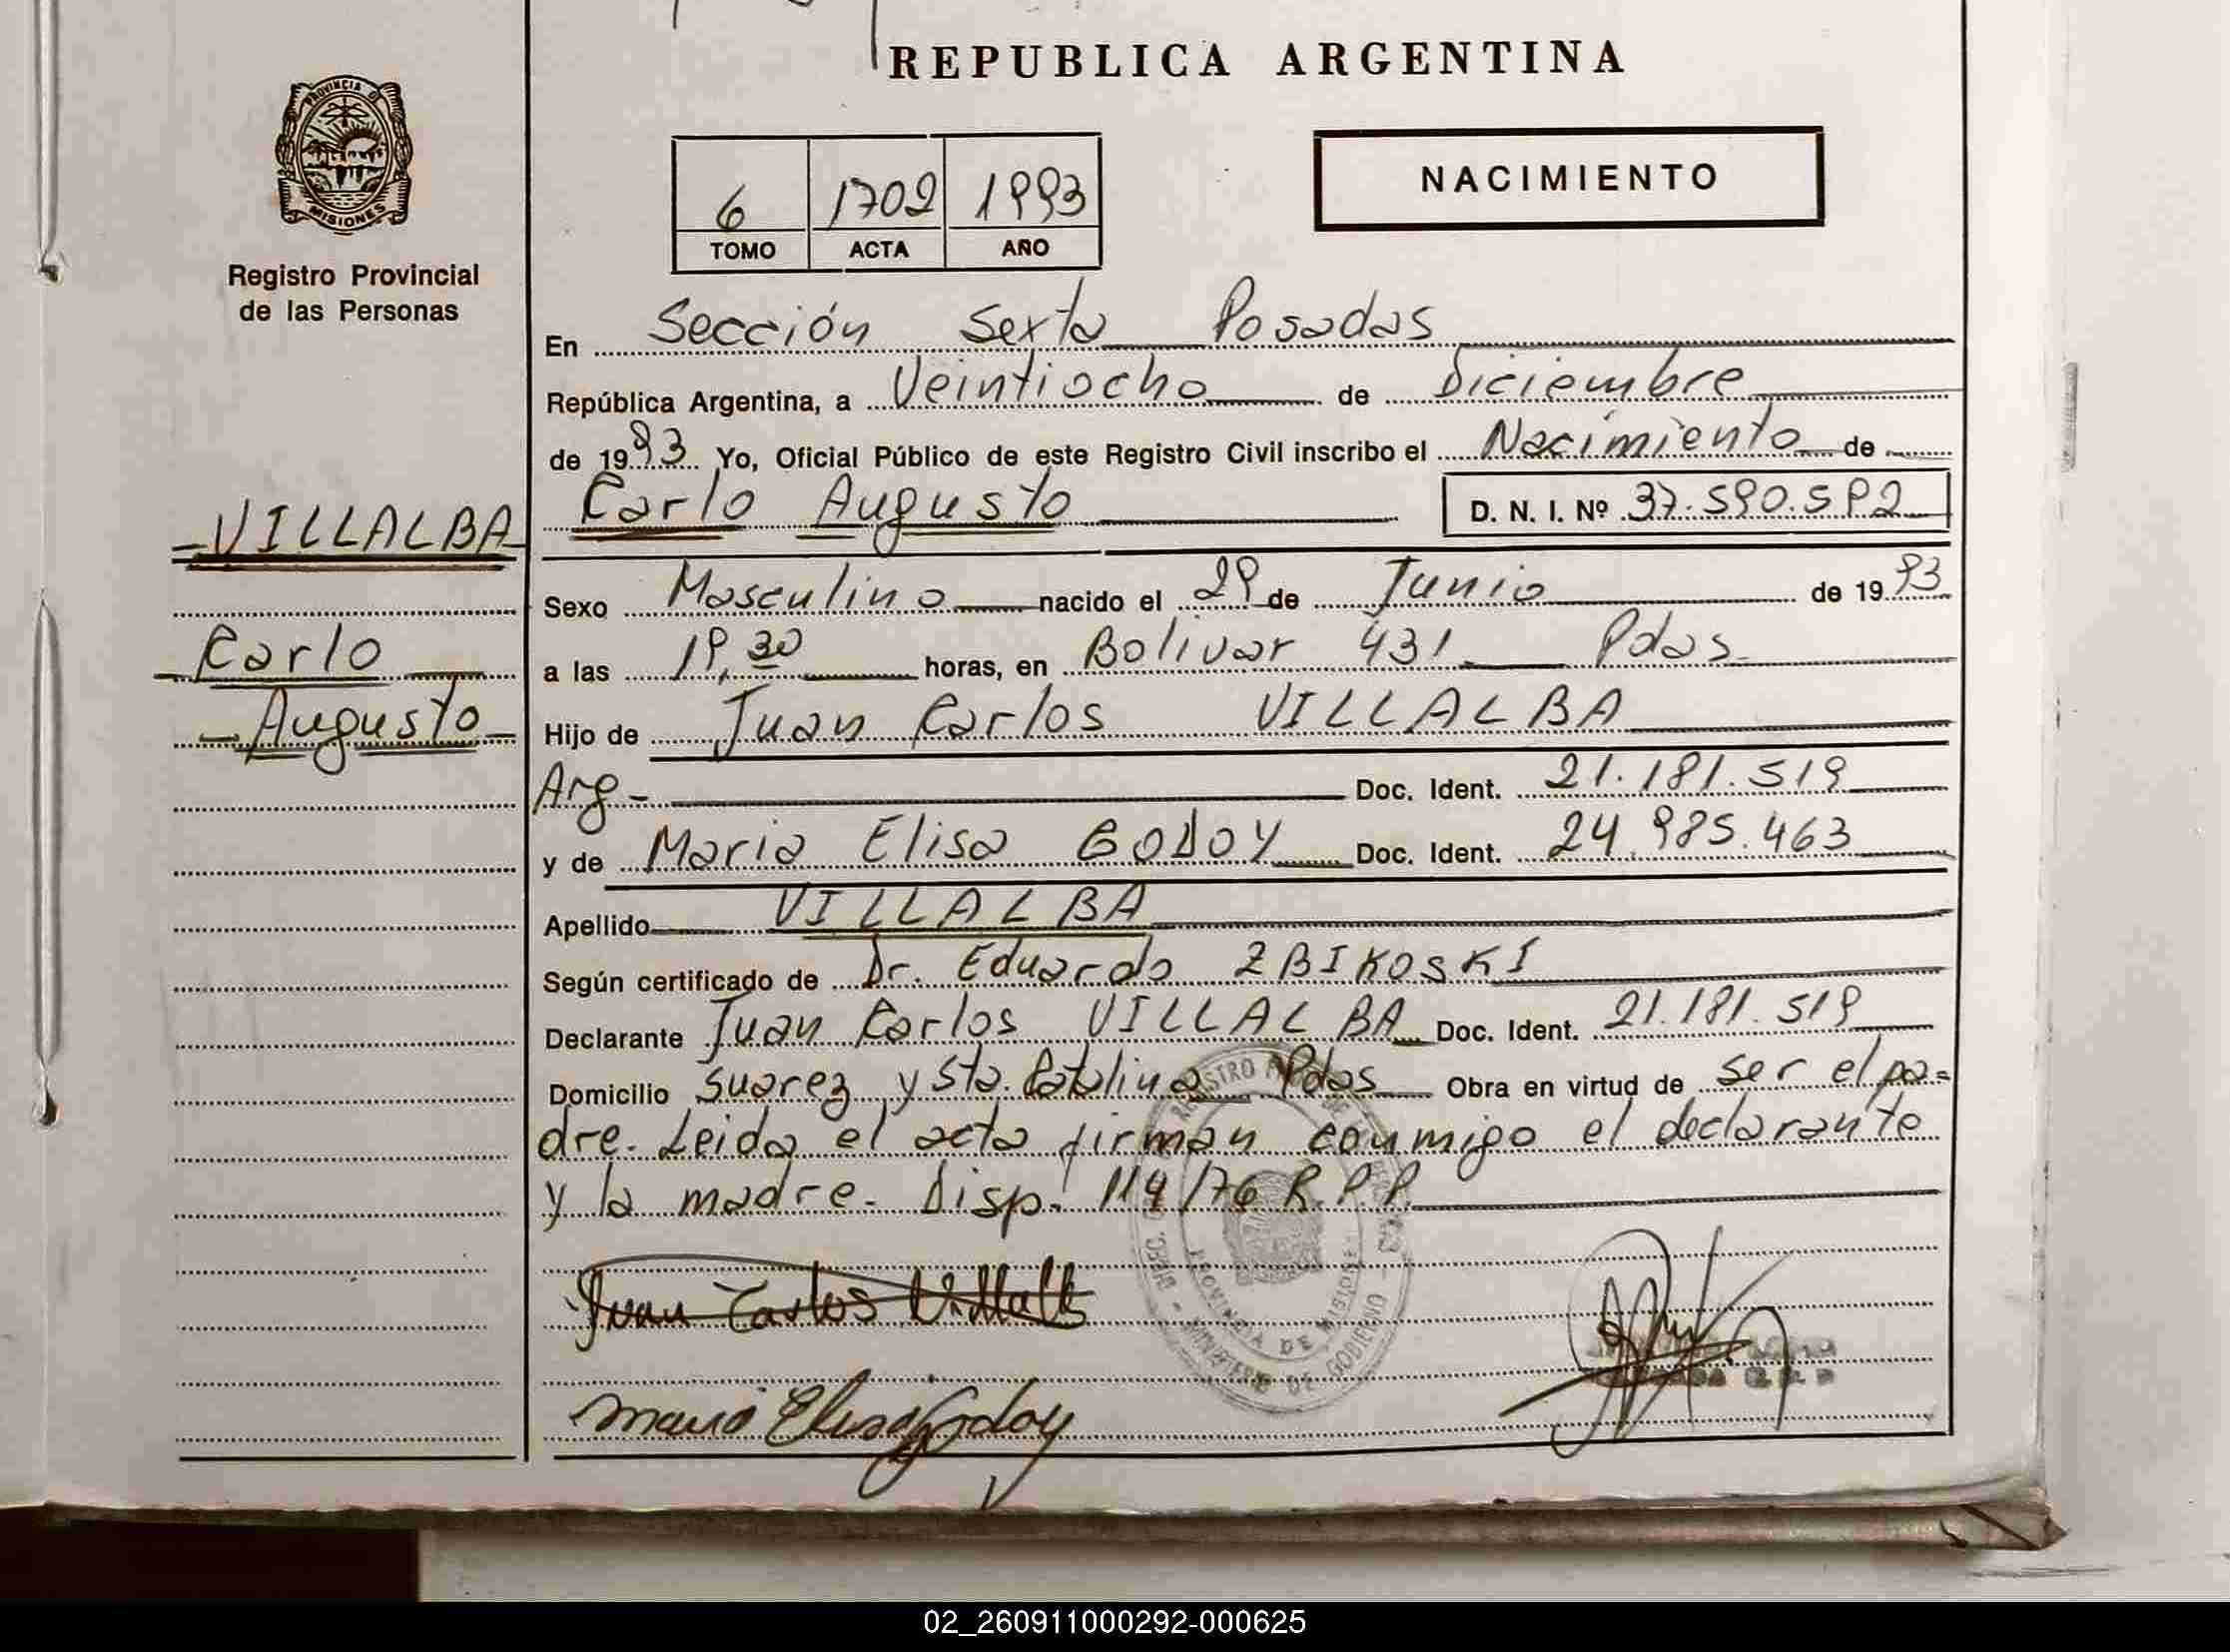 REPUBLICA ARGENTINA
PROVINCIA D
MISIONES
Registro Provincial
de las Personas
6 1702 1993
TOMO ACTA AÑO
NACIMIENTO
En Sección Sexta Posadas
República Argentina, a Veintiocho de Diciembre
de 1993 Yo, Oficial Público de este Registro Civil inscribo el Nacimiento de
VILLALBA
Carlo Augusto D. N. I. Nº 37.590.592
Sexo Masculino nacido el 29 de Junio de 1993
Carlo
a las 19,30 horas, en Bolivar 431 Pdas.
Augusto
Hijo de Juan Carlos VILLALBA
Arg - Doc. Ident. 21.181.519
y de Maria Elisa GODOY Doc. Ident. 24.985.463
Apellido VILLALBA
Según certificado de Dr. Eduardo ZBIKOSKI
Declarante Juan Carlos VILLALBA Doc. Ident. 21.181.519
Domicilio Suarez y Sta. Catalina Pdas Obra en virtud de ser el pa=
dre. Leida el acta firman conmigo el declarante
y la madre. Disp. 114/76 R.P.P.
PROVINCIA DE MISIONES
MINISTERIO DE GOBIERNO
Juan Carlos Villalb
Maria Elisa Godoy
02_260911000292-000625